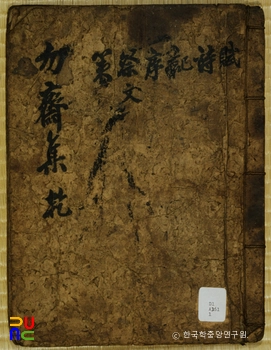 賦
詩
記
序
祭文
勿齋集 乾
ⓒ 한국학중앙연구원